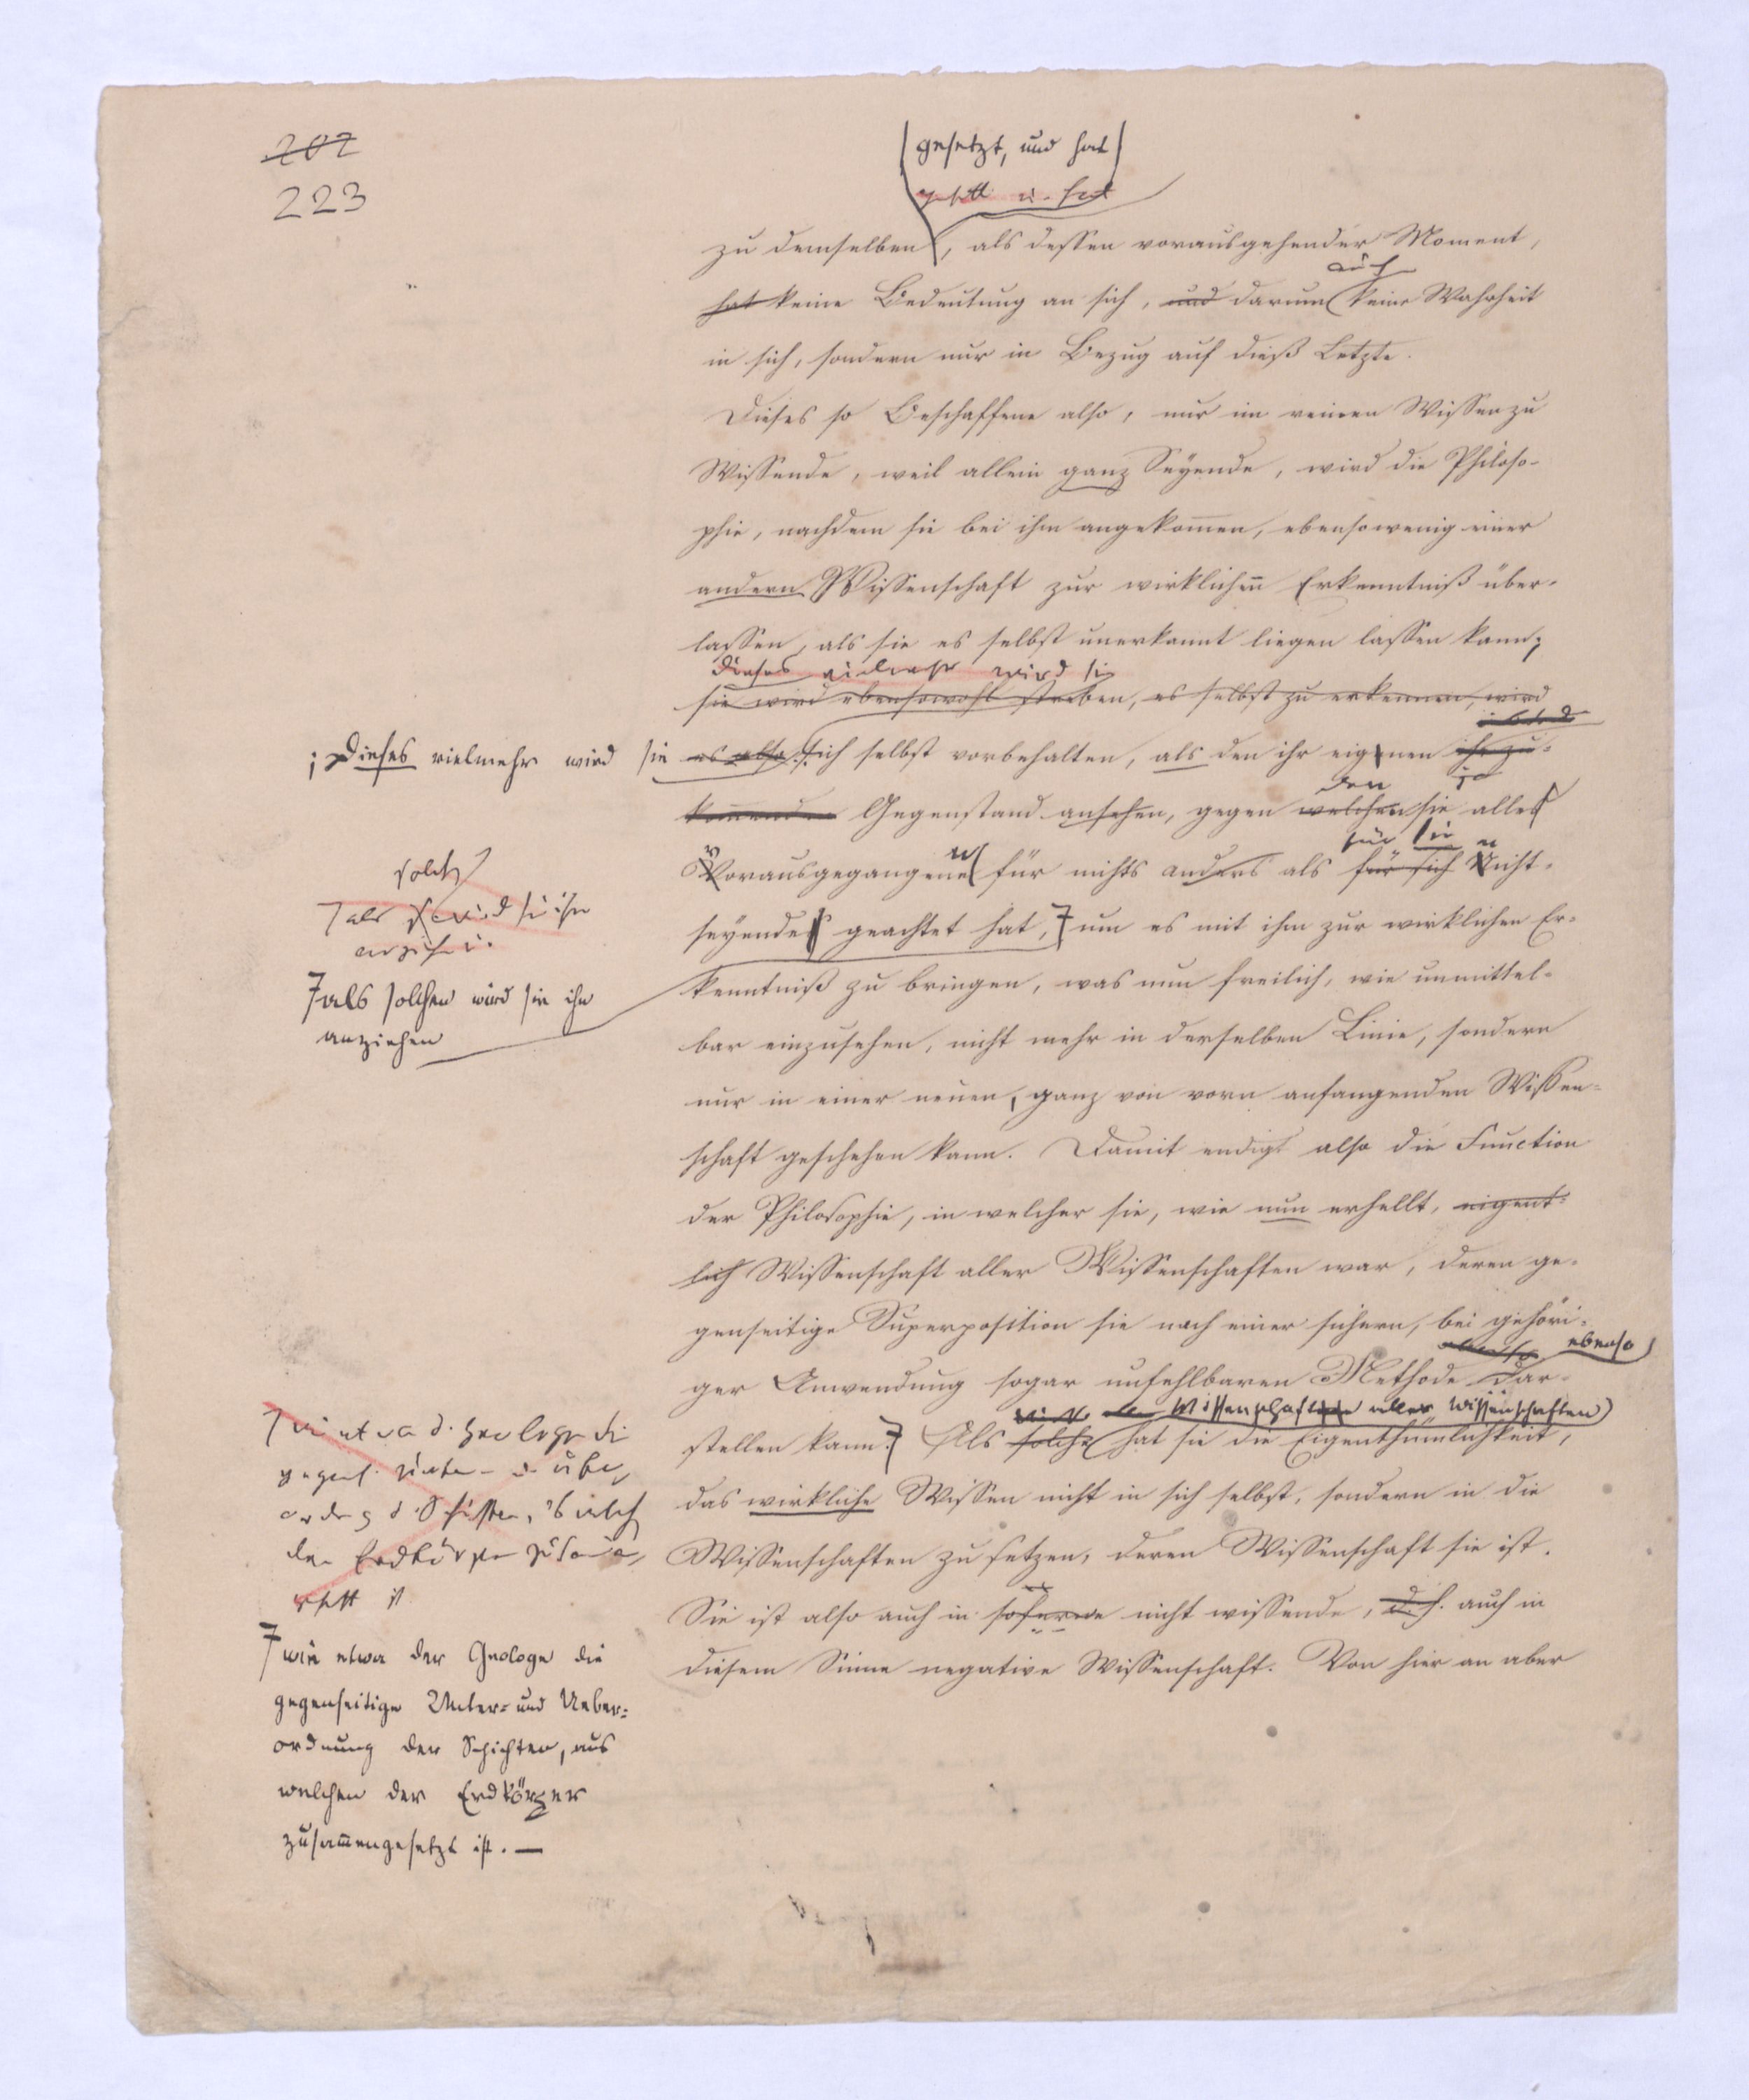 202
223
gesetzt, und hat
gesetzt u. hat
zu demselben, als dessen vorausgehender Moment,
auch
hat keine Bedeutung an sich, und darum keine Wahrheit
in sich, sondern nur in Bezug auf dieß Letzte.
Dieses so Beschaffene also, nur im reinen Wissen zu
Wissende, weil allein ganz Seyende, wird die Philoso-
phie, nachdem sie bei ihm angekom̅en, ebensowenig einer
andern Wissenschaft zur wirklichen Erkenntniß über-
lassen, als sie es selbst unerkannt liegen lassen kann;
dieses vielmehr wird sie
sie wird ebensowohl streben, es selbst zu erkennen, wird
; Dieses vielmehr wird sie es also sich selbst vorbehalten, als den ihr eignen ihr zu-
den
kom̅enden Gegenstand ansehen, gegen welchen sie alles
für sie
Vorausgegangene für nichts anders als für sich Nicht-
seyendes geachtet hat, um es mit ihm zur wirklichen Er-
solch
als wird sie ihn
anziehen
als solchen wird sie ihn
anziehen
kenntniß zu bringen, was nun freilich, wie unmittel-
bar einzusehen, nicht mehr in derselben Linie, sondern
nur in einer neuen, ganz von vorn anfangenden Wissen-
schaft geschehen kann. Damit endigt also die Function
der Philosophie, in welcher sie, wie nun erhellt, eigent-
lich Wissenschaft aller Wissenschaften war, deren ge-
genseitige Superposition sie nach einer sichern, bei gehöri-
ebenso ebenso
ger Anwendung sogar unfehlbaren Methode dar-
Wissenschaft aller Wissenschaften
stellen kann. Als solche hat sie die Eigenthümlichkeit,
das wirkliche Wissen nicht in sich selbst, sondern in die
Wissenschaften zu setzen, deren Wissenschaft sie ist.
Sie ist also auch in soferne nicht wissende, d. h. auch in
diesem Sinne negative Wissenschaft. Von hier an aber
wie etwa d. Geologe die
gegens. Unter- u. Über
ordng d. Schichten, aus welch
der Erdkörper zusam̅en
gesetzt ist
wie etwa der Geologe die
gegenseitige Unter- und Ueber-
ordnung der Schichten, aus
welchen der Erdkörper
zusam̅engesetzt ist. —